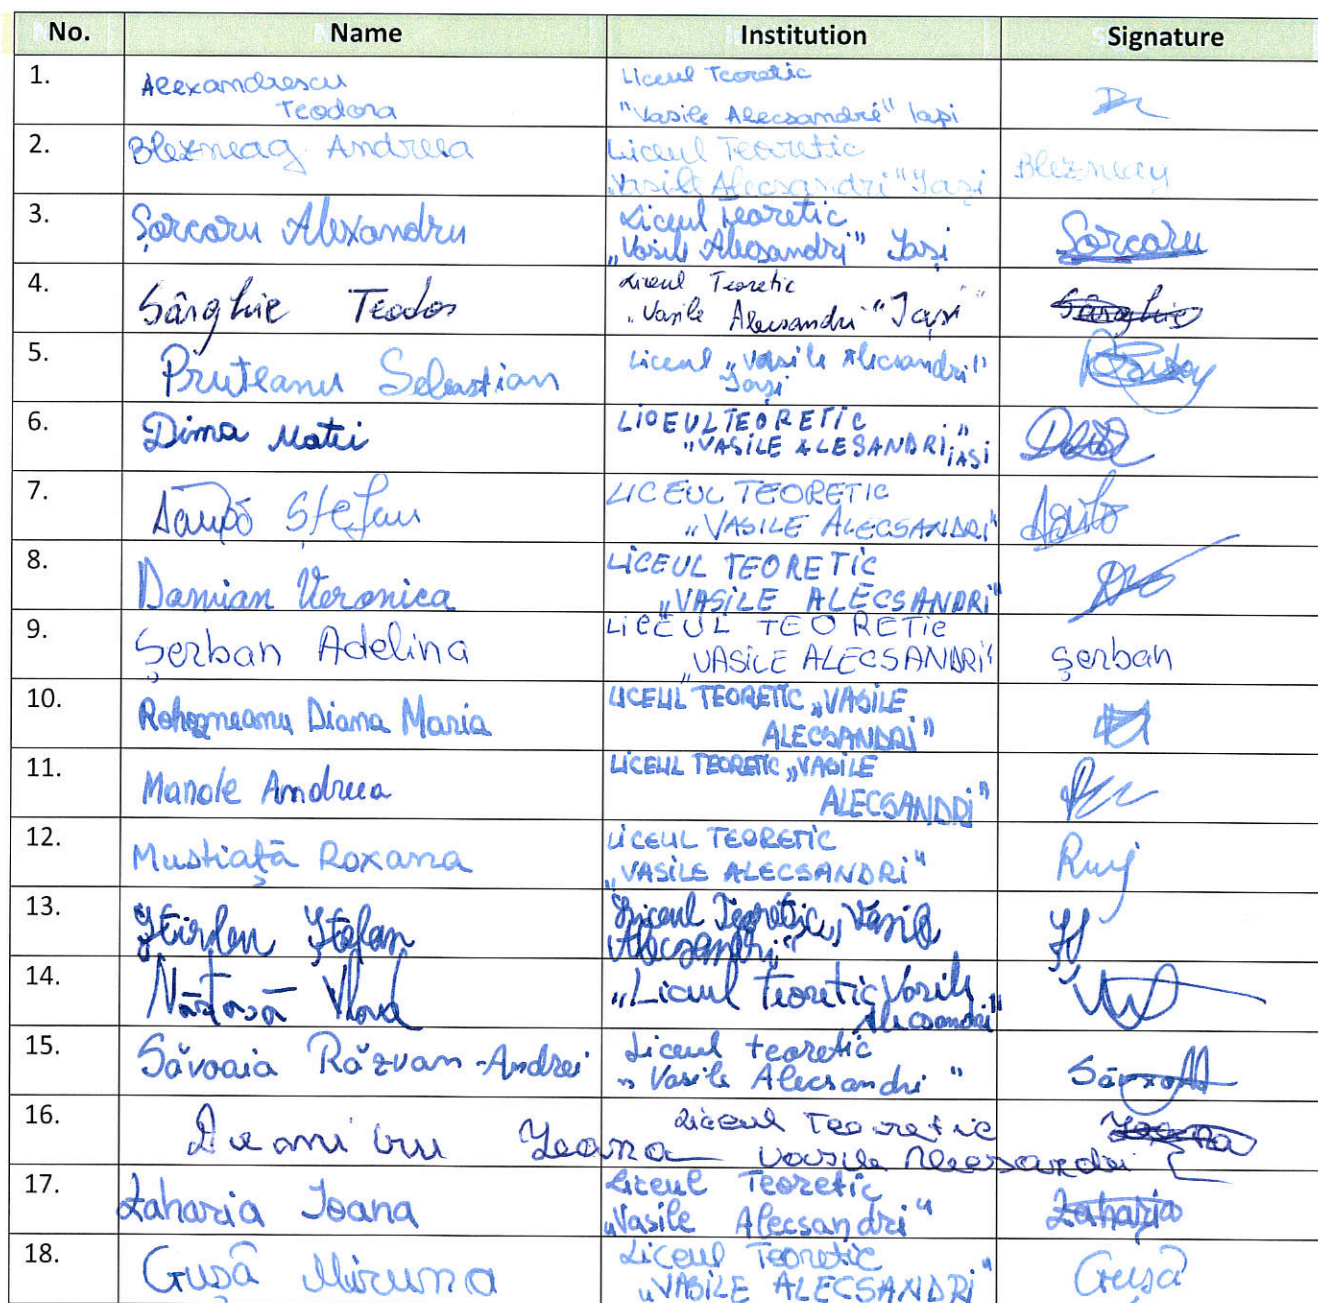 No. Name Institution Signature
1. Alexandrescu Teodora Liceul Teoretic
"Vasile Alecsandri" Iași
2. Blezneag Andreea Liceul Teoretic
„Vasile Alecsandri" Iași Blezneag
3. Șorcaru Alexandru Liceul Teoretic
„Vasile Alecsandri" Iași Șorcaru
4. Sârghie Teodor Liceul Teoretic
„Vasile Alecsandri" Iași Sârghie
5. Pruteanu Sebastian Liceul „Vasile Alecsandri"
Iași
6. Dima Matei LICEUL TEORETIC
"VASILE ALESANDRI" IAȘI
7. Ștefan LICEUL TEORETIC
„VASILE ALECSANDRI"
8. Damian Veronica LICEUL TEORETIC
„VASILE ALECSANDRI"
9. Șerban Adelina LICEUL TEORETIC
„VASILE ALECSANDRI" Șerban
10. Diana Maria LICEUL TEORETIC „VASILE
ALECSANDRI"
11. Manole Andreea LICEUL TEORETIC „VASILE
ALECSANDRI"
12. Mustiață Roxana LICEUL TEORETIC
„VASILE ALECSANDRI"
13. Ștefan Liceul Teoretic „Vasile
Alecsandri"
14. Năstasă Vlad „Liceul Teoretic Vasile
Alecsandri"
15. Săvoaia Răzvan-Andrei Liceul teoretic
„Vasile Alecsandri"
16. Ioana Liceul Teoretic
Vasile Alecsandri
17. Zaharia Ioana Liceul Teoretic
„Vasile Alecsandri" Zaharia
18. Gușă Miruna Liceul Teoretic
„VASILE ALECSANDRI" Gușă